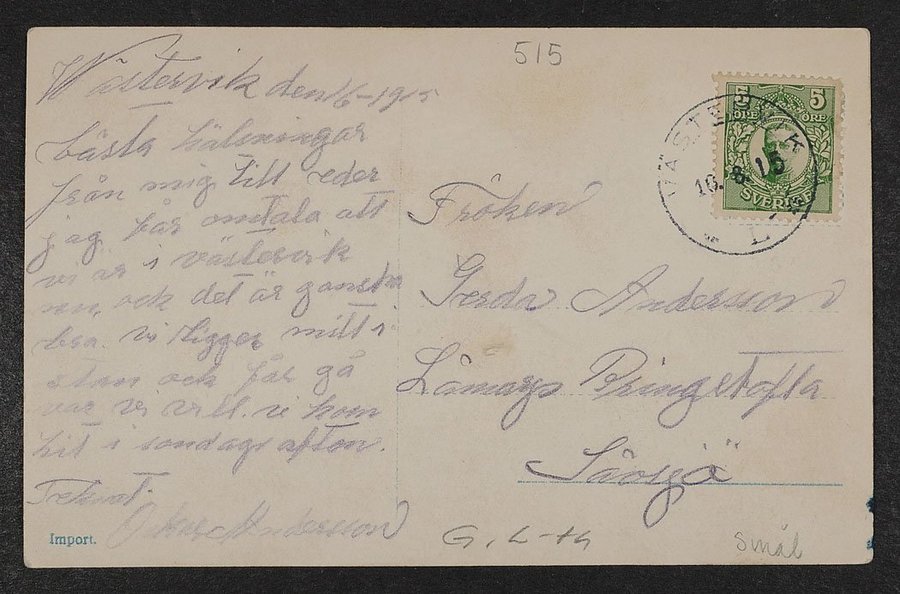 515
Wästervik den 16-1915
bästa hälsningar
från mig till eder
jag får omtala att
vi är i västervik
nu, ock det är ganska
bra. vi ligger mitt i
stan ock får gå
var vi vill. vi kom
hit i söndags afton.
Oskar Andersson
Import.
5 5
ÖRE ÖRE
SVERIGE
VÄSTERVIK
16.8.15
Fröken
Gerda Andersson
Ringstofta
Sävsjö
G. L-th
Smål